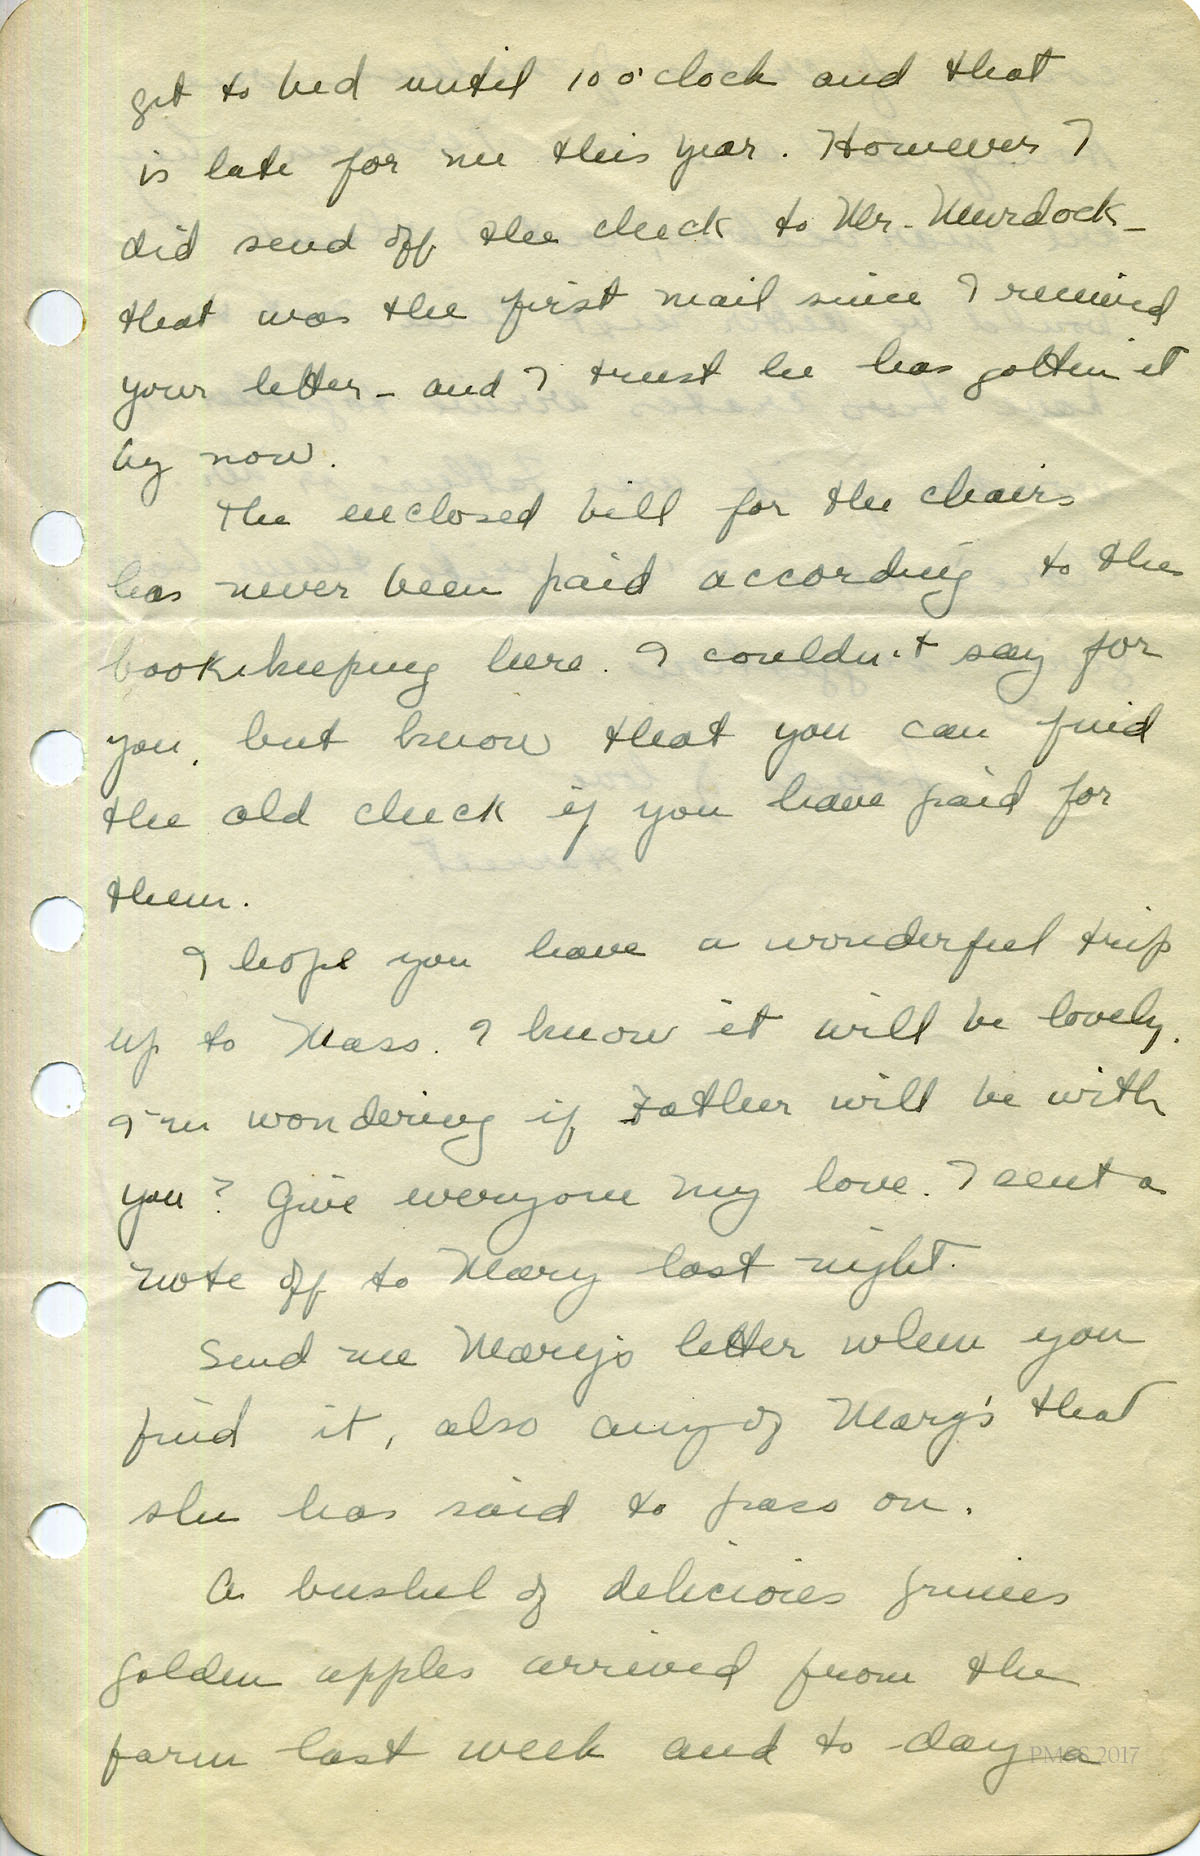 get to bed until 10 o'clock and that
is late for me this year. However I
did send off the check to Mr. Murdock –
that was the first mail since I received
your letter – and I trust he has gotten it
by now.
The enclosed bill for the chairs
has never been paid according to the
bookkeeping here. I couldn't say for
you, but know that you can find
the old check if you have paid for
them.
I hope you have a wonderful trip
up to Mass. I know it will be lovely.
I'm wondering if Father will be with
you? Give everyone my love. I sent a
note off to Mary last night.
Send me Mary's letter when you
find it, also any of Marg's that
she has said to pass on.
A bushel of delicious
golden apples arrived from the
farm last week and to-day a
PMSS 2017